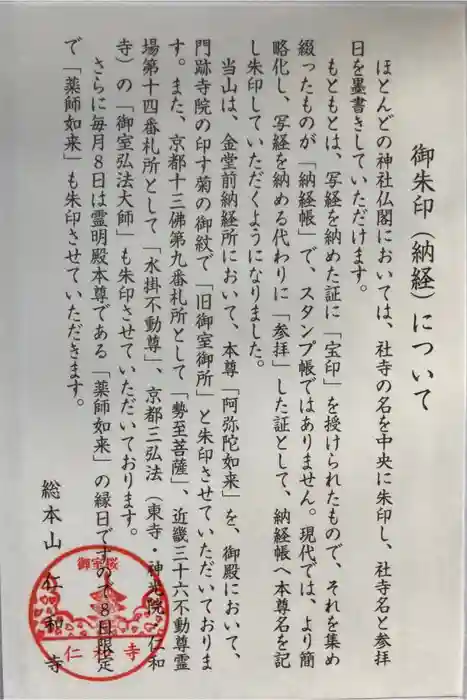 御朱印（納経）について
ほとんどの神社仏閣においては、社寺の名を中央に朱印し、社寺名と参拝
日を墨書きしていただけます。
もともとは、写経を納めた証に「宝印」を授けられたもので、それを集め
綴ったものが「納経帳」で、スタンプ帳ではありません。現代では、より簡
略化し、写経を納める代わりに「参拝」した証として、納経帳へ本尊名を記
し朱印していただくようになりました。
当山は、金堂前納経所において、本尊「阿弥陀如来」を、御殿において、
門跡寺院の印す菊の御紋で「旧御室御所」と朱印させていただいておりま
す。また、京都十三佛第九番札所として「勢至菩薩」、近畿三十六不動尊霊
場第十四番札所として「水掛不動尊」、京都三弘法（東寺・神光院・仁和
寺）の「御室弘法大師」も朱印させていただいております。
さらに毎月８日は霊明殿本尊である「薬師如来」の縁日ですので８日限定
で「薬師如来」も朱印させていただきます。
総本山仁和寺
御室桜
仁和寺